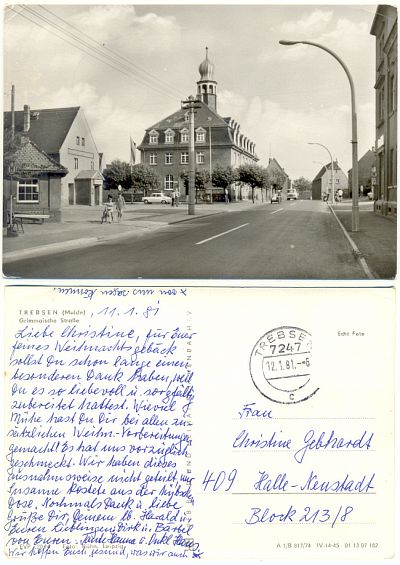 x von uns sagen können.
TREBSEN (Mulde) , 11.1.81
Grimmaische Straße
Liebe Christine, für Euer
feines Weihnachtsgebäck
sollst Du schon lange einen
besonderen Dank haben, weil
Du es so liebevoll u. sorgfältig
zubereitet hattest. Wieviel
Mühe hast Du Dir bei allen zu-
sätzlichen Weihn.-Vorbereitungen
gemacht! Es hat uns vorzüglich
geschmeckt. Wir haben dieses
ausnahmsweise nicht geteilt, nur
Susanne kostete aus der
Dose. Nochmals Dank u. liebe
Grüße Dir, Deinem lb. Harald u.
Euren Lieblingen Dirk u. Bärbel
von Euren Tante Hanna u. Onkel Hans
Wir hoffen Euch gesund, was wir auch x
Echt Foto
TREBSEN
7247
12.1.81.--8
c
Frau
Christine Gebhardt
409 Halle-Neustadt
Block 213/8
A 1/B 817/74 IV-14-45 01 13 07 182